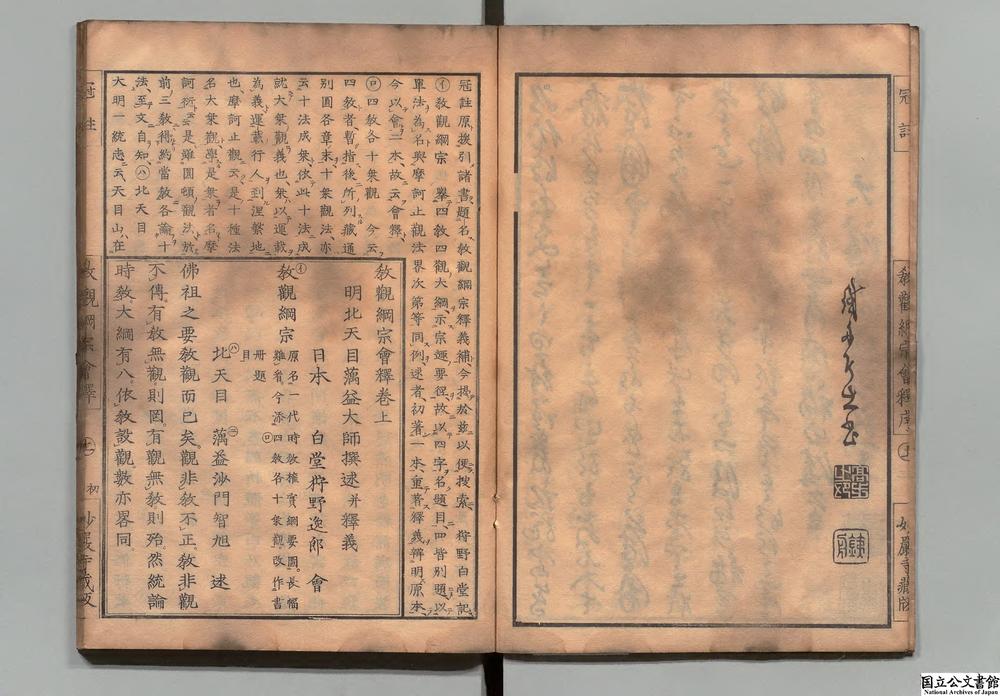 冠註
教觀綱宗會釋序
上
妙嚴寺藏版
冠註原援引諸書題名教觀綱宗釋義補今揭於玆以便搜索 狩野白堂記
㋑教觀綱宗 擧四教四觀大綱示宗趣要徑故以四字名題目四皆別題以
軍法為名與摩訶止觀法界次第等同例述者初著一本重著釋義辨明原本
今以會二本故云會釋
㋺四教各十乘觀 今云
四教者暫指後所列藏通
別圓各章末十乘觀法亦
云十法成乘依此十法成
就大乘觀義也乘以運載
為義運載行人到涅槃地
也摩訶止觀云是十種法
名大乘觀學是乘者名摩
訶衍云是雖圓頓觀法於
前三教得約當教各論十
法至文自知㋩北天目
大明一統志云天目山在
教觀綱宗會釋卷上
明北天目蕅益大師撰述 并釋義
日本 白堂狩野逸郎 會
㋑教觀綱宗 原名一代時教權實綱要圖長幅
難看今添四教各十乘觀改作書
冊題
目
㋩北天目㊁蕅益沙門智旭 述
佛祖之要教觀而已矣觀非教不正教非觀
不傳有教無觀則罔有觀無教則殆然統論
時教大綱有八依教設觀數亦畧同
冠註
教觀綱宗會釋
初
妙嚴寺藏版